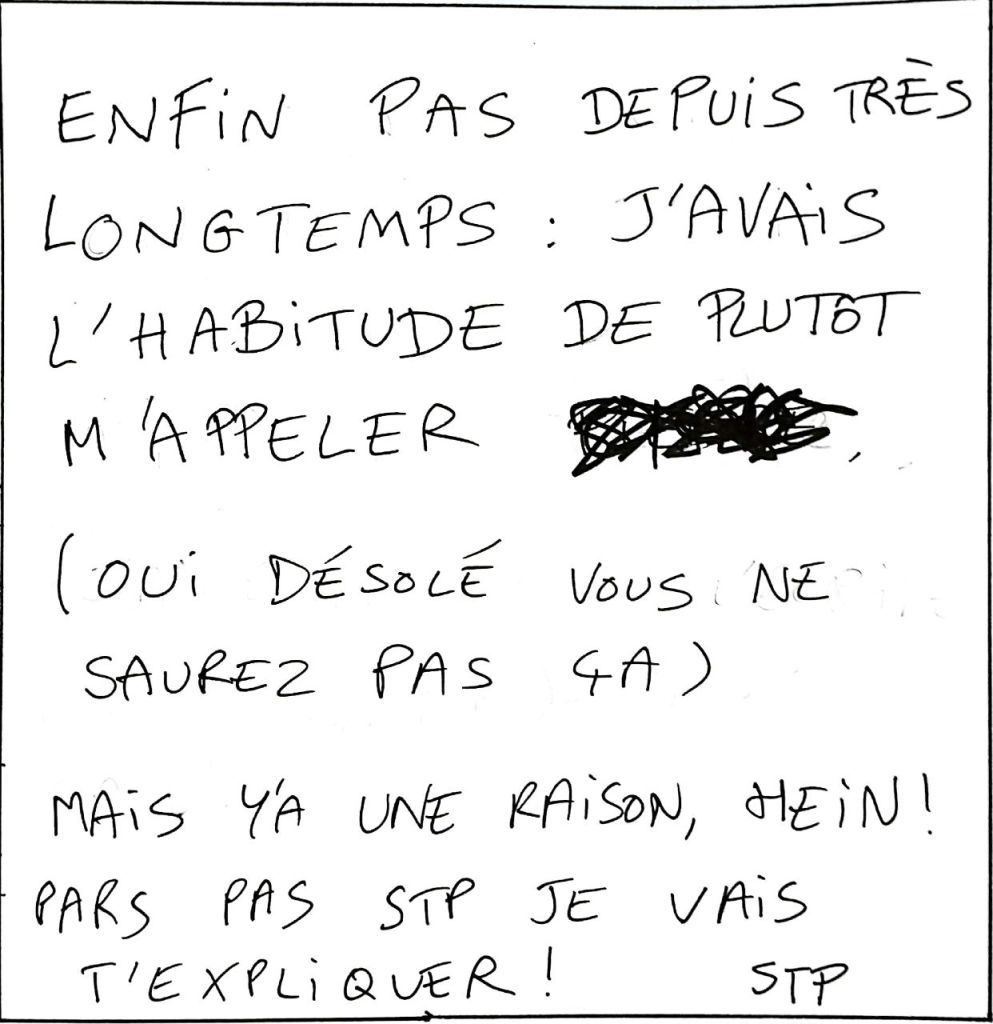 ENFIN PAS DEPUIS TRÈS
LONGTEMPS : J'AVAIS
L'HABITUDE DE PLUTÔT
M'APPELER .
(OUI DÉSOLÉ VOUS NE
SAUREZ PAS ÇA)
MAIS Y'A UNE RAISON, HEIN!
PARS PAS STP JE VAIS
T'EXPLIQUER! STP